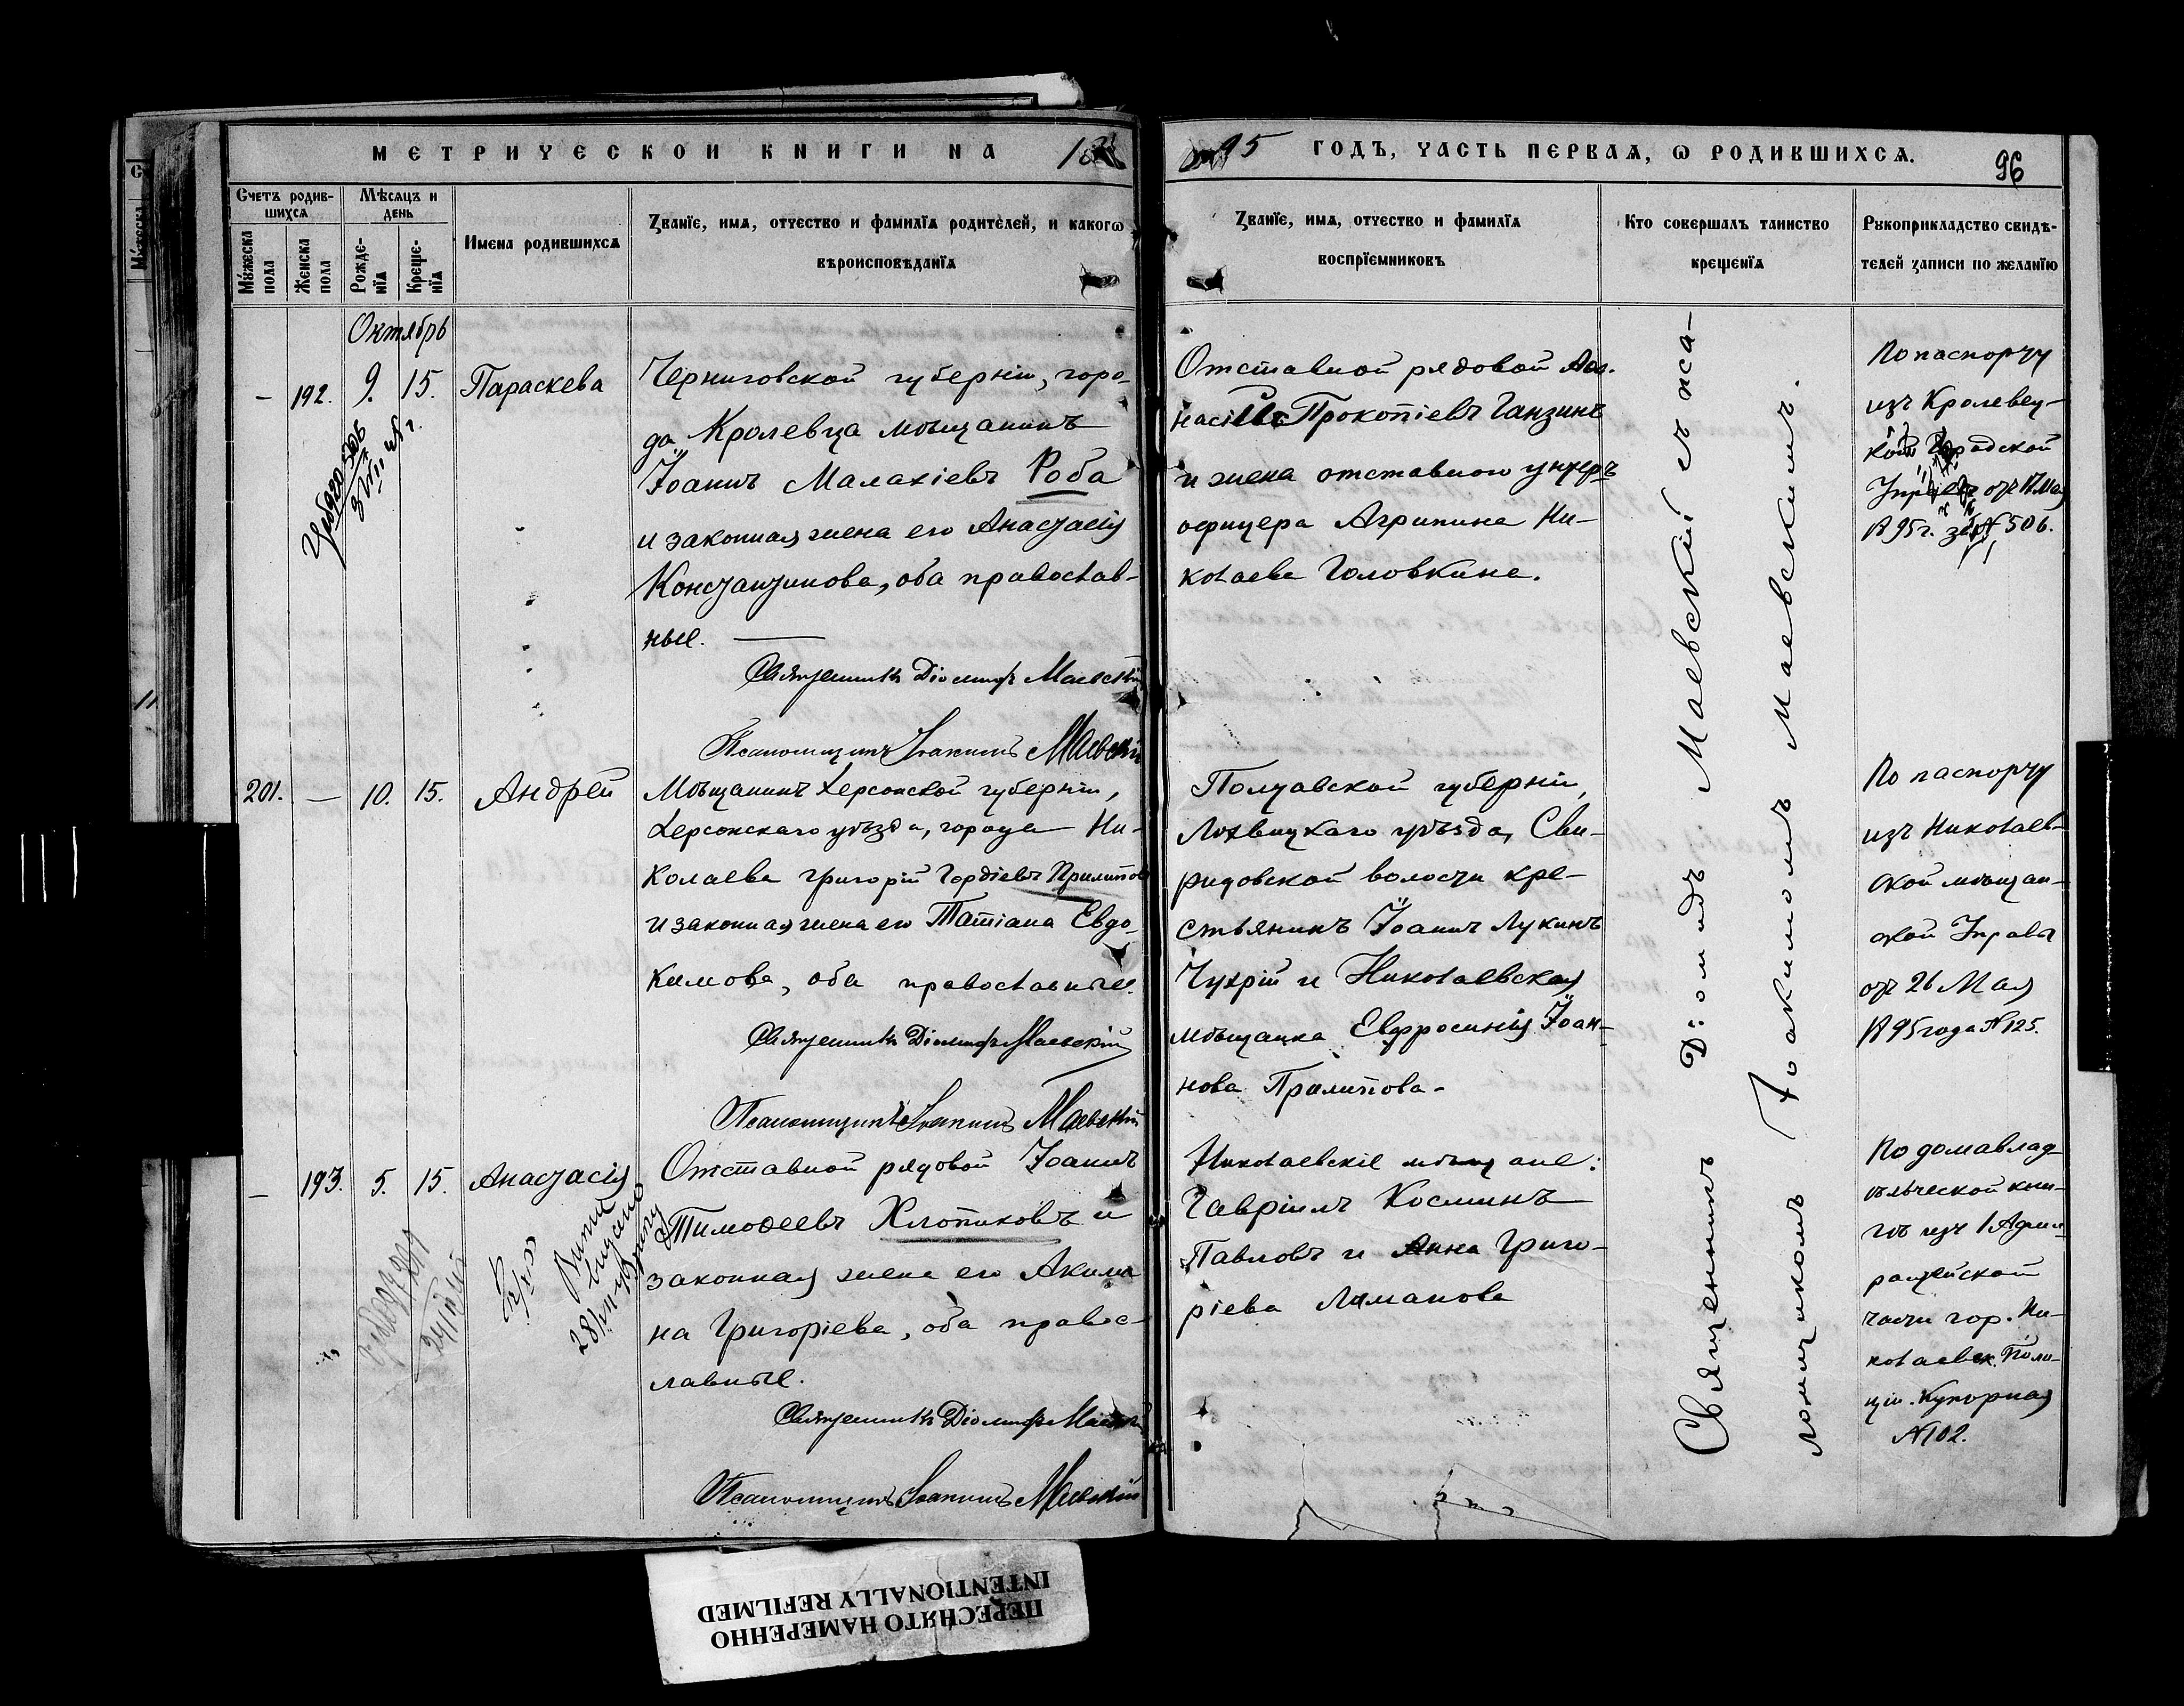 МЕТРИЧЕСКОЙ КНИГИ НА 18
95 ГОДЪ, ЧАСТЬ ПЕРВАЯ, Ѡ РОДИВШИХСЯ.
96
Счетъ родив-
шихся
Мѣсяцъ и
день
Мужеска
пола
Женска
пола
Рожде-
нїя
Креще-
нїя
Имена родившихся
Званїе, имя, отчество и фамилїя родителей, и какогѡ
вѣроисповѣданїя
Званїе, имя, отчество и фамилїя
воспрїемниковъ
Кто совершалъ таинство
крещенїя
Рукоприкладство свидѣ-
телей записи по желанїю
Октябрь
— 192. 9. 15. Параскева
Черниговской губерніи, горо-
да Кролевца мѣщанинъ
Іоаннъ Малахіевъ Роба
и законная жена его Анастасія
Константинова, оба православ-
ные.
Священникъ Діомидъ Маевскій
Псаломщикъ Іоакимъ Маевскій
Отставной рядовой Афа-
насій Прокопіевъ Ганзинъ
и жена отставного унтеръ
офицера Агрипина Ни-
колаева Головкина.
По паспорту
изъ Кролевец-
кой Городской
Управы отъ 17 Мая
1895 г. за № 506.
201. — 10. 15. Андрей
Мѣщанинъ Херсонской губерніи,
Херсонскаго уѣзда, города Ни-
колаева Григорій Гордіевъ Прилипов
и законная жена его Татіана Евдо-
кимова, оба православные.
Священникъ Діомидъ Маевскій
Псаломщикъ Іоакимъ Маевскій
Полтавской губерніи,
Лохвицкаго уѣзда, Сви-
ридовской волости кре-
стьянинъ Іоаннъ Лукинъ
Чухрій и Николаевская
мѣщанка Евфросинія Іоан-
нова Прилипова.
По паспорту
изъ Николаев-
ской мѣщан-
ской Управы
отъ 26 Мая
1895 года № 125.
— 193. 5. 15. Анастасія
Отставной рядовой Іоаннъ
Тимоѳеевъ Хлопиковъ и
законная жена его Акили-
на Григоріева, оба правос-
лавные.
Священникъ Діомидъ Маевскій
Псаломщикъ Іоакимъ Маевскій
Николаевскіе мѣщане:
Гавріилъ Косминъ
Павловъ и Анна Григо-
ріева Лиманова
По домавлад-
ѣльческой кни-
гѣ изъ 1 Адми-
ралтейской
части гор. Ни-
колаевск. Поли-
ціи. Кузнрная
№ 102.
Священникъ Діомидъ Маевскій съ пса-
ломщикомъ Іоакимомъ Маевскимъ.
ПЕРЕСНЯТО НАМЕРЕННО
INTENTIONALLY REFILMED